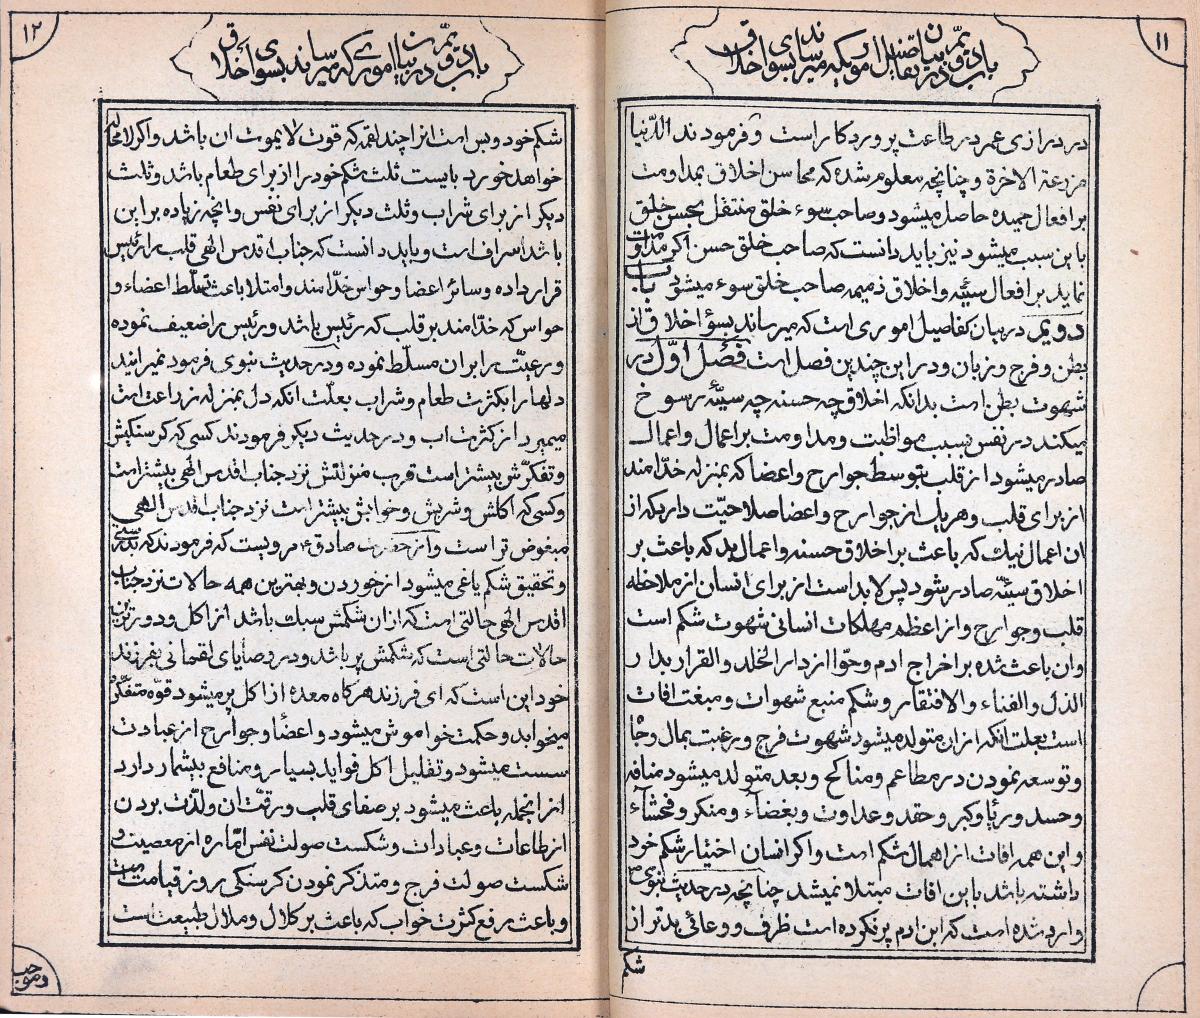 ۱۱
باب دویم در بیان تفاصیل اموریکه میرسانند بسوای اخلاق
در درازی عمر در طاعت پروردکار است و فرمودند الدّنیا
مزرعة الاخرة و چنانچه معلوم شده که محاسن اخلاق بمداومت
بر افعال حمیده حاصل میشود و صاحب سوء خلق منتقل بحسن خلق
باین سبب میشود نیز باید دانست که صاحب خلق حسن اکر مداومت
نماید بر افعال سیّئه و اخلاق ذمیمه صاحب خلق سوء میشود باب
دویم در بیان تفاصیل اموری است که میرساند بسؤ اخلاق از
بطن و فرج و زبان و در این چندین فصل است فصل اوّل در
شهوت بطن است بدانکه اخلاق چه حسنه چه سیّئه رسوخ
میکند در نفس بسبب مواظبت و مداومت بر اعمال و اعمال
صادر میشود از قلب بتوسط جوارح و اعضا که بمنزله خدّامند
از برای قلب و هریك از جوارح و اعضا صلاحیّت دارد که از
ان اعمال نیك که باعث بر اخلاق حسنه و اعمال بد که باعث بر
اخلاق سیّئه صادر شود پس لابد است از برای انسان از ملاحظه
قلب و جوارح و از اعظم مهلکات انسانی شهوت شکم است
وان باعث شده بر اخراج ادم و حوّا از دار الخلد و القرار بدار
الذل و الفناء و الافتقار و شکم منبع شهوات و منبغت افات
است بعلت انکه از ان متولد میشود شهوت فرج و رغبت بمال و جاه
و توسعه نمودن در مطاعم و مناکح و بعد متولد میشود منافسه
و حسد و ریا و کبر و حقد و عداوت و بغضآء و منکر و فحشآء
و این همه افات از اهمال شکم است و اکر انسان اختیار شکم خود
داشته باشد باین افات مبتلا نمیشد چنانچه در حدیث نبوی
وارد شده است که ابن ادم پر نکرده است ظرف و وعائی بدتر از
شکم
۱۲
باب دویم در بیان امورے که میرسانند بسوای اخلاق
شکم خود و بس است انرا چند لقمه که قوت لا یموت ان باشد و اکر لامحاله
خواهد خورد بایست ثلث شکم خود را از برای طعام باشد و ثلث
دیکر از برای شراب و ثلث دیکر از برای نفس و انچه زیاده بر این
باشد اسراف است و باید دانست که جناب اقدس الهی قلب را رئیس
قرار داده و سائر اعضا و حواس خدّامند و امتلا باعث تسلّط اعضاء و
حواس که خدّامند بر قلب که رئیس باشد و رئیس را ضعیف نموده
و رعیّت را بران مسلّط نموده و در حدیث نبوی فرمود نمیرانید
دلها را بکثرت طعام و شراب بعلّت انکه دل بمنزله زراعت است
میمیرد از کثرت اب و در حدیث دیکر فرمودند کسی که کرسنکیش
و تفکرّش بیشتر است قرب منزلتش نزد جناب اقدس الهی بیشتر است
و کسی که اکلش و شربش و خوابش بیشتر است نزد جناب اقدس الهی
مبغوض تر است و از حضرت صادق ع مرویست که فرمودند که بدرستی
و تحقیق شکم یاغی میشود از خوردن و بهترین همه حالات نزد جناب
اقدس الهی حالتی است که ازان شکمش سبك باشد از اکل و دورترین
حالات حالتی است که شکمش پر باشد و در وصایای لقمانی بفرزند
خود این است که ای فرزند هرکاه معده از اکل پر میشود قوّه متفکّره
میخوابد و حکمت خواموش میشود و اعضا و جوارح از عبادت
سست میشود و تقلیل اکل فواید بسیار و منافع بیشمار دارد
از انجمله باعث میشود بر صفای قلب و رقّت ان و لذّت بردن
از طاعات و عبادات و شکست صولت نفس امّاره از معصیت و
شکست صولت فرج و متذکر نمودن کرسنکی روز قیامت است
و باعث رفع کثرت خواب که باعث بر کلال و ملال طبیعت است
و موجب